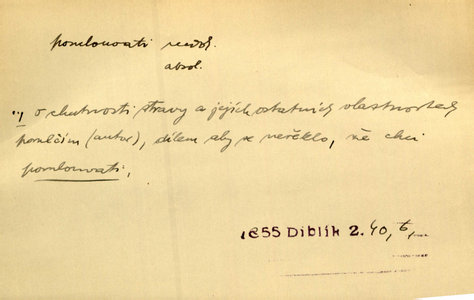 pomlouvati nedok.
absol.
"/ o chutnosti stravy a jejích ostatních vlastnostech
pomlčím (autor), dílem aby se neřeklo, že chci
pomlouvati,
1855 Diblík 2. 40, 6,